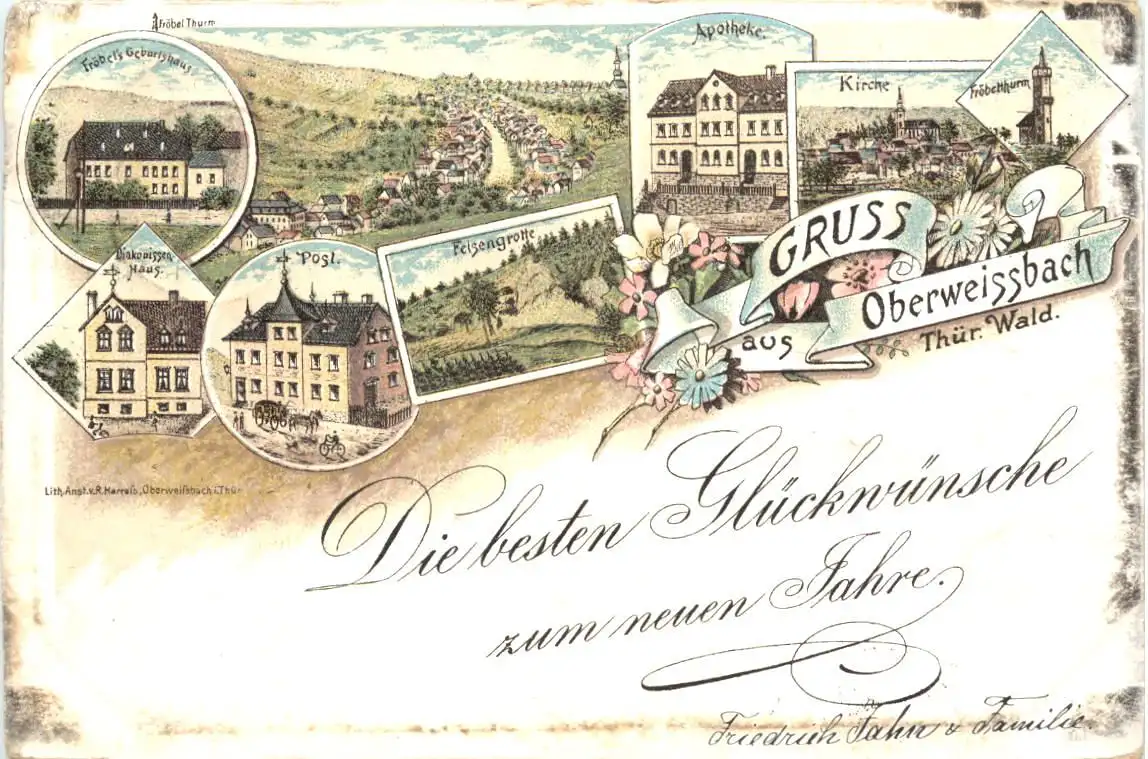 Fröbel Thurm
Fröbel's Geburtshaus
Apotheke.
Kirche
Fröbelthurm
Diakonissen-
Haus.
Post.
Felsengrotte
GRUSS
aus
Oberweissbach
Thür. Wald.
Lith. Anst. v. R. Harraß, Oberweißbach i. Thür.
Die besten Glückwünsche
zum neuen Jahre.
Friedrich Jahn & Familie